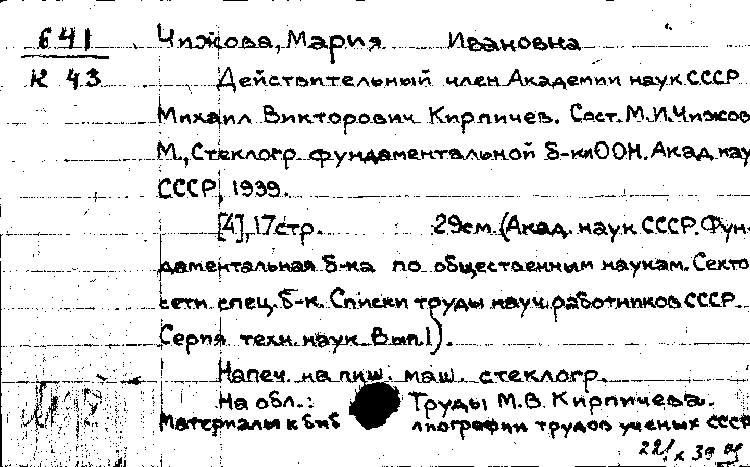 641 Чижова, Мария Ивановна
К 43 Действительный член Академии наук СССР
Михаил Викторович Кирпичев. Сост. М.И. Чижов
М., Стеклогр. фундаментальной б-ки ООН. Акад. нау
СССР, 1939.
[4], 17 стр. 29 см. (Акад. наук СССР. Фун-
даментальная б-ка по общественным наукам. Секто
сети спец. б-к. Списки труды науч. работников СССР.
Серия техн. наук. Вып. 1).
Напеч. на пиш. маш. стеклогр.
На обл.: Труды М.В. Кирпичева.
Материалы к биб лиографии трудов ученых СССР